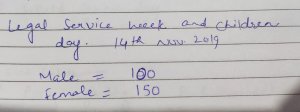 Legal Service week and children
day. 14th nov. 2019
Male = 100
female = 150